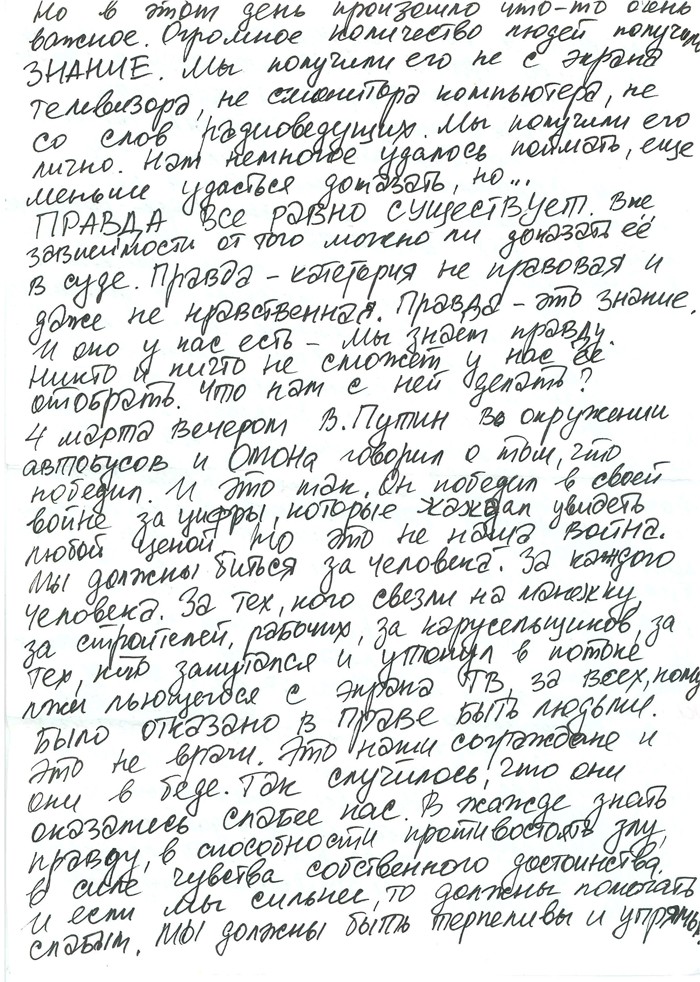 Но в этот день произошло что-то очень
важное. Огромное количество людей получили
ЗНАНИЕ. Мы получили его не с экрана
телевизора, не с монитора компьютера, не
со слов радиоведущих. Мы получили его
лично. Нам немногое удалось поймать, еще
меньше удасться доказать, но...
ПРАВДА ВСЕ РАВНО СУЩЕСТВУЕТ. Вне
зависимости от того можно ли доказать её
в суде. Правда - категория не правовая и
даже не нравственная. Правда - это знание.
И оно у нас есть - мы знаем правду.
Никто и ничто не сможет у нас её
отобрать. Что нам с ней делать?
4 марта вечером В.Путин во окружении
автобусов и ОМОНа говорил о том, что
победил. И это так. Он победил в своей
войне за цифры, которые жаждал увидеть
любой ценой. Но это не наша война.
Мы должны биться за человека. За каждого
человека. За тех, кого свезли на манежку,
за строителей, рабочих, за карусельщиков, за
тех, кто запутался и утонул в потоке
лжи льющегося с экрана ТВ, за всех, кому
было отказано в праве быть людьми.
Это не враги. Это наши сограждане и
они в беде. Так случилось, что они
оказались слабее нас. В жажде знать
правду, в способности противостоять злу,
в силе чувства собственного достоинства.
И если мы сильнее, то должны помогать
слабым. Мы должны быть терпеливы и упрямы.